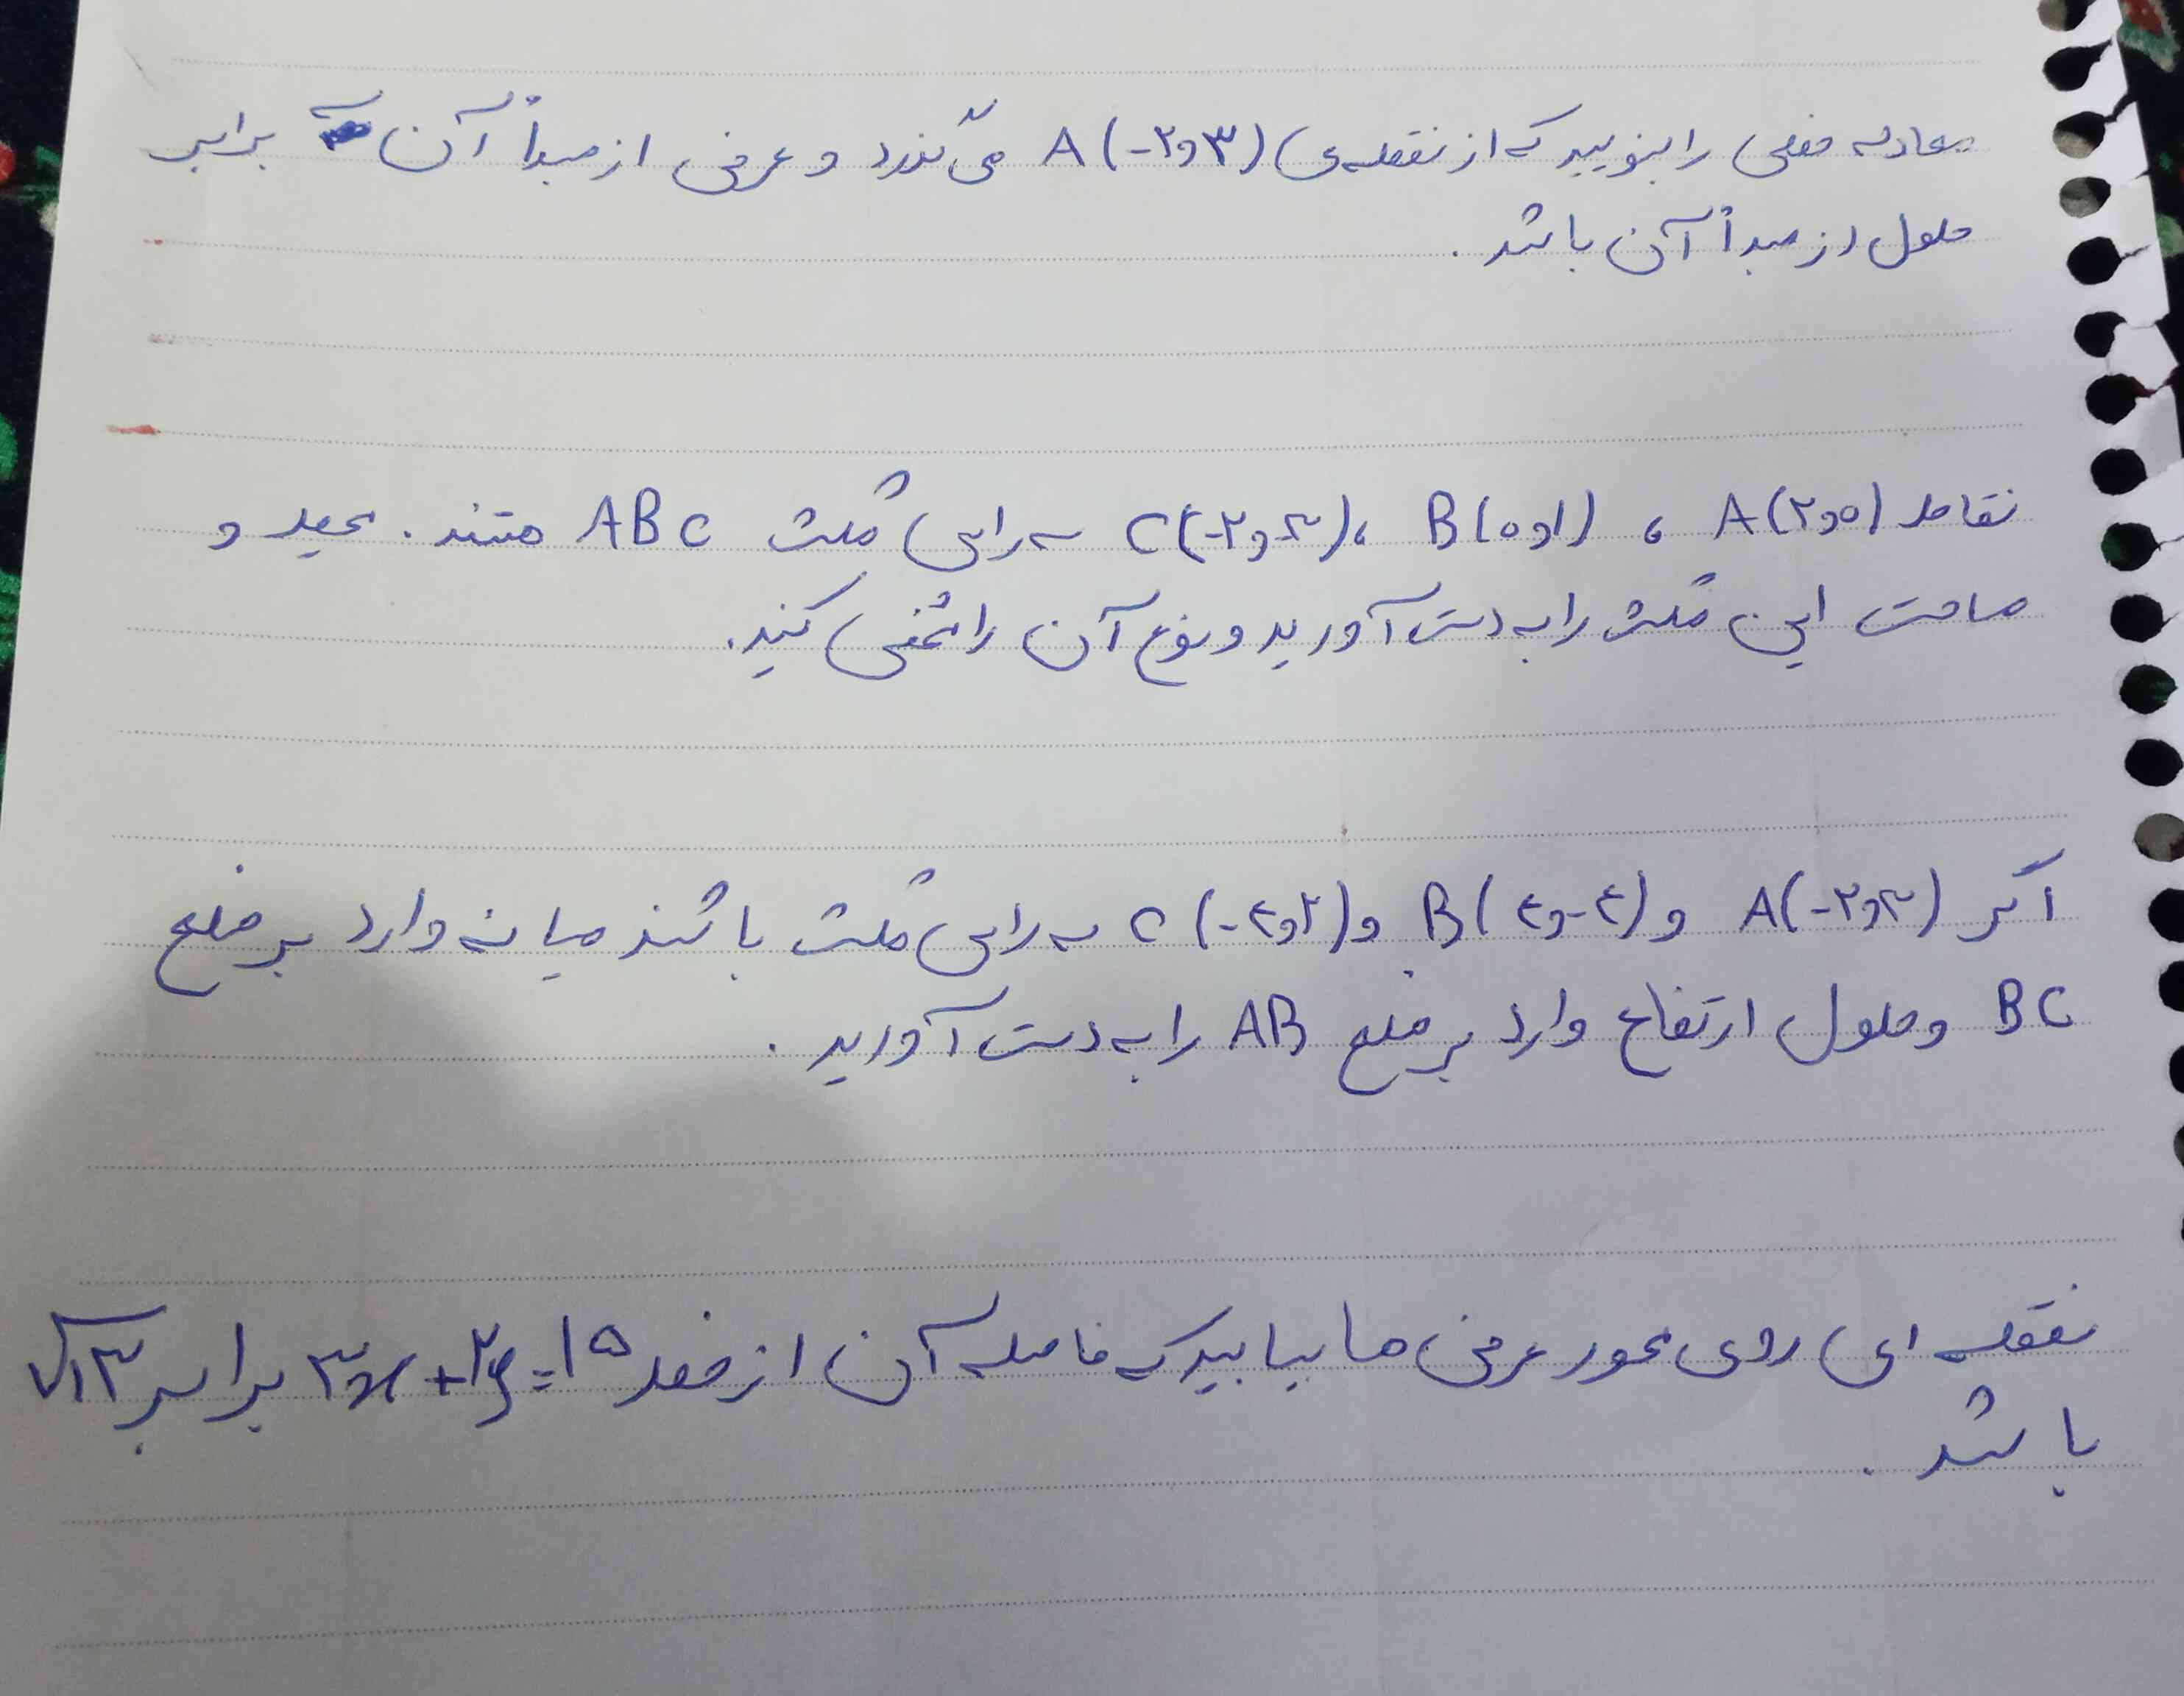 معادله خطی را بنویسید که از نقطه‌ی A(-۲و۳) می‌گذرد و عرض از مبدأ آن برابر
طول از مبدأ آن باشد.
نقاط A(۲و۵) ، B(۵و۱) ، C(-۲و۲) سه راس مثلث ABC هستند. محیط و
مساحت این مثلث را به دست آورید و نوع آن را مشخص کنید.
اگر A(-۲و۲) و B(۴و-۴) و C(-۴و۲) سه راس مثلث باشند میانه وارد بر ضلع
BC و طول ارتفاع وارد بر ضلع AB را به دست آورید.
نقطه ای روی محور عرض ها بیابید که فاصله آن از خط ۳x+۲y=۱۵ برابر √۱۳
باشد.